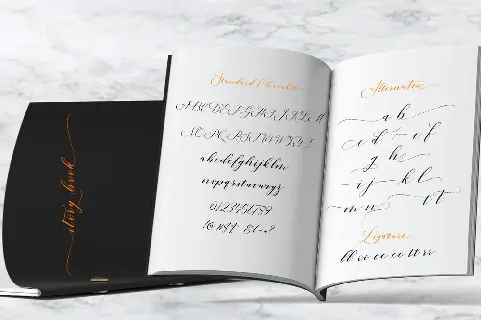 story book
Standard Character
ABCDEFGHIJKLM
NOPQRSTUVWXYZ
abcdefghijklm
nopqrstuvwxyz
0123456789
Alternates
a b
c d e f
g h
i j k l
m n o t
Ligature
ll oo ee cc tt rr